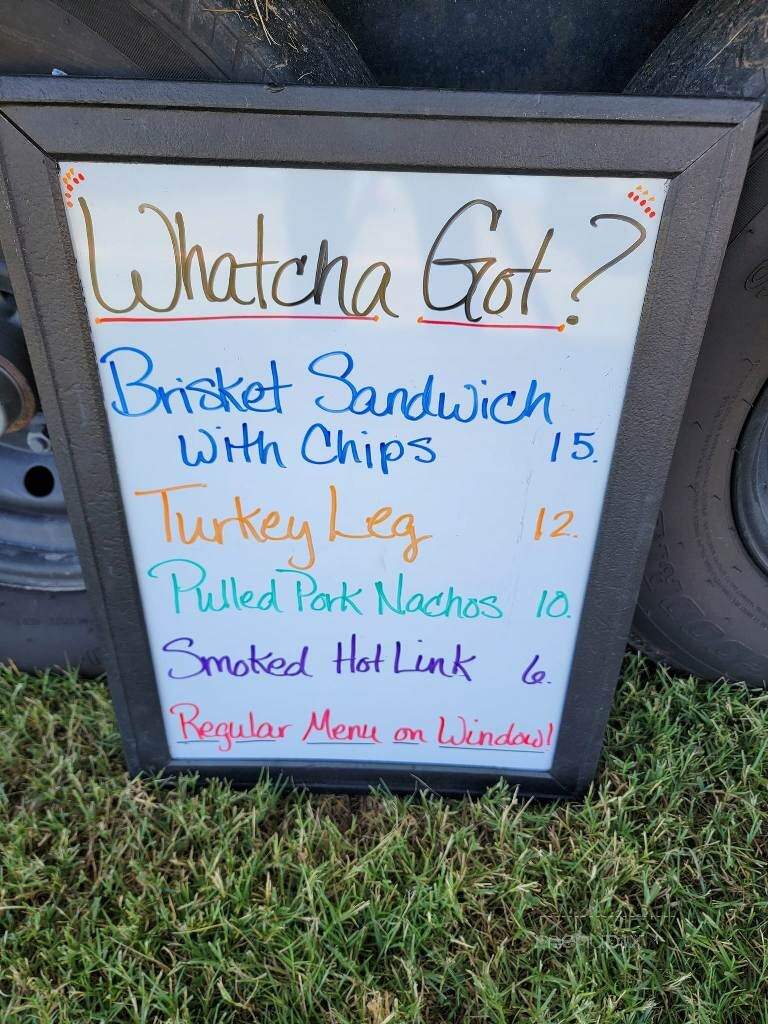 Whatcha Got?
Brisket Sandwich
with Chips 15.
Turkey Leg 12.
Pulled Pork Nachos 10.
Smoked Hot Link 6.
Regular Menu on Window!